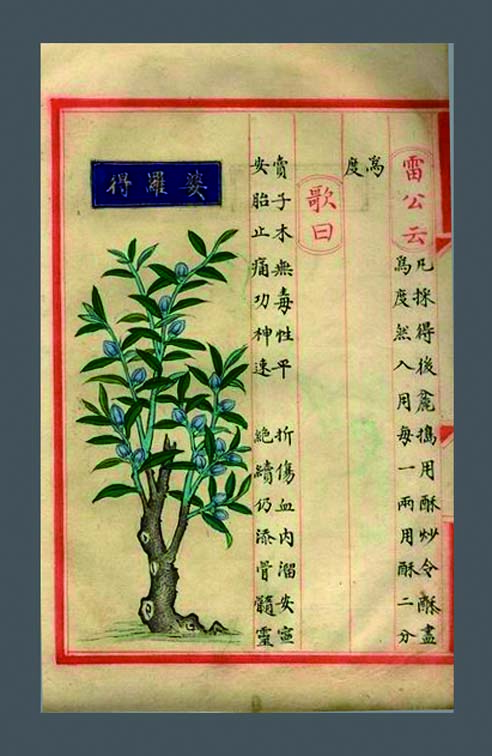 雷公云
凡採得後麁擣用酥炒令酥盡
為度然入用每一兩用酥二分
為
度
歌曰
賣子木無毒性平
安胎止痛功神速
折傷血內溜安宣
絶續仍添骨髓靈
婆羅得